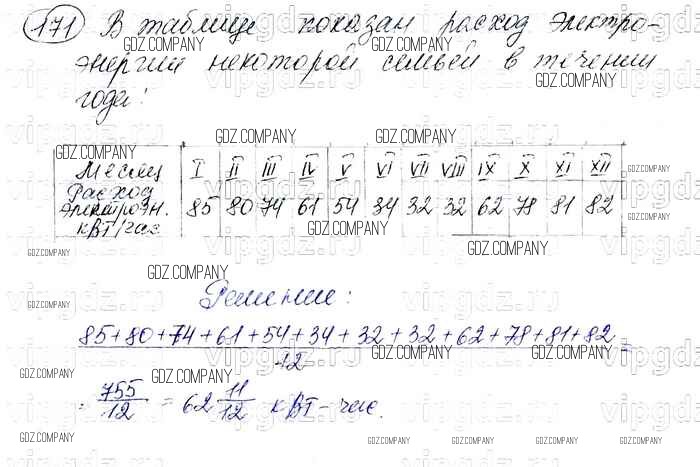 171 В таблице показан расход электро-
энергии некоторой семьей в течении
года:
Месяц I II III IV V VI VII VIII IX X XI XII
Расход
электроэн. 85 80 74 61 54 34 32 32 62 78 81 82
кВт/час
Решение:
85+80+74+61+54+34+32+32+62+78+81+82 =
12
= 755/12 = 62 11/12 кВт-час.
GDZ.COMPANY
vipgdz.ru